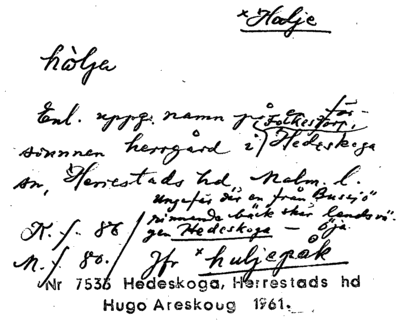 *Holje
hòlja
Enl. uppg. namn på en för-
Folkestorp.
svunnen herrgård i Hedeskoga
sn, Herrestads hd, Malm. l.
Ungefär där en från Bussjö
rinnande bäck skär landsvä-
gen Hedeskoga — Öja.
K. f. 86
M. f. 80. Jfr *huljepåk
Nr 7535 Hedeskoga, Herrestads hd
Hugo Areskoug 1961.